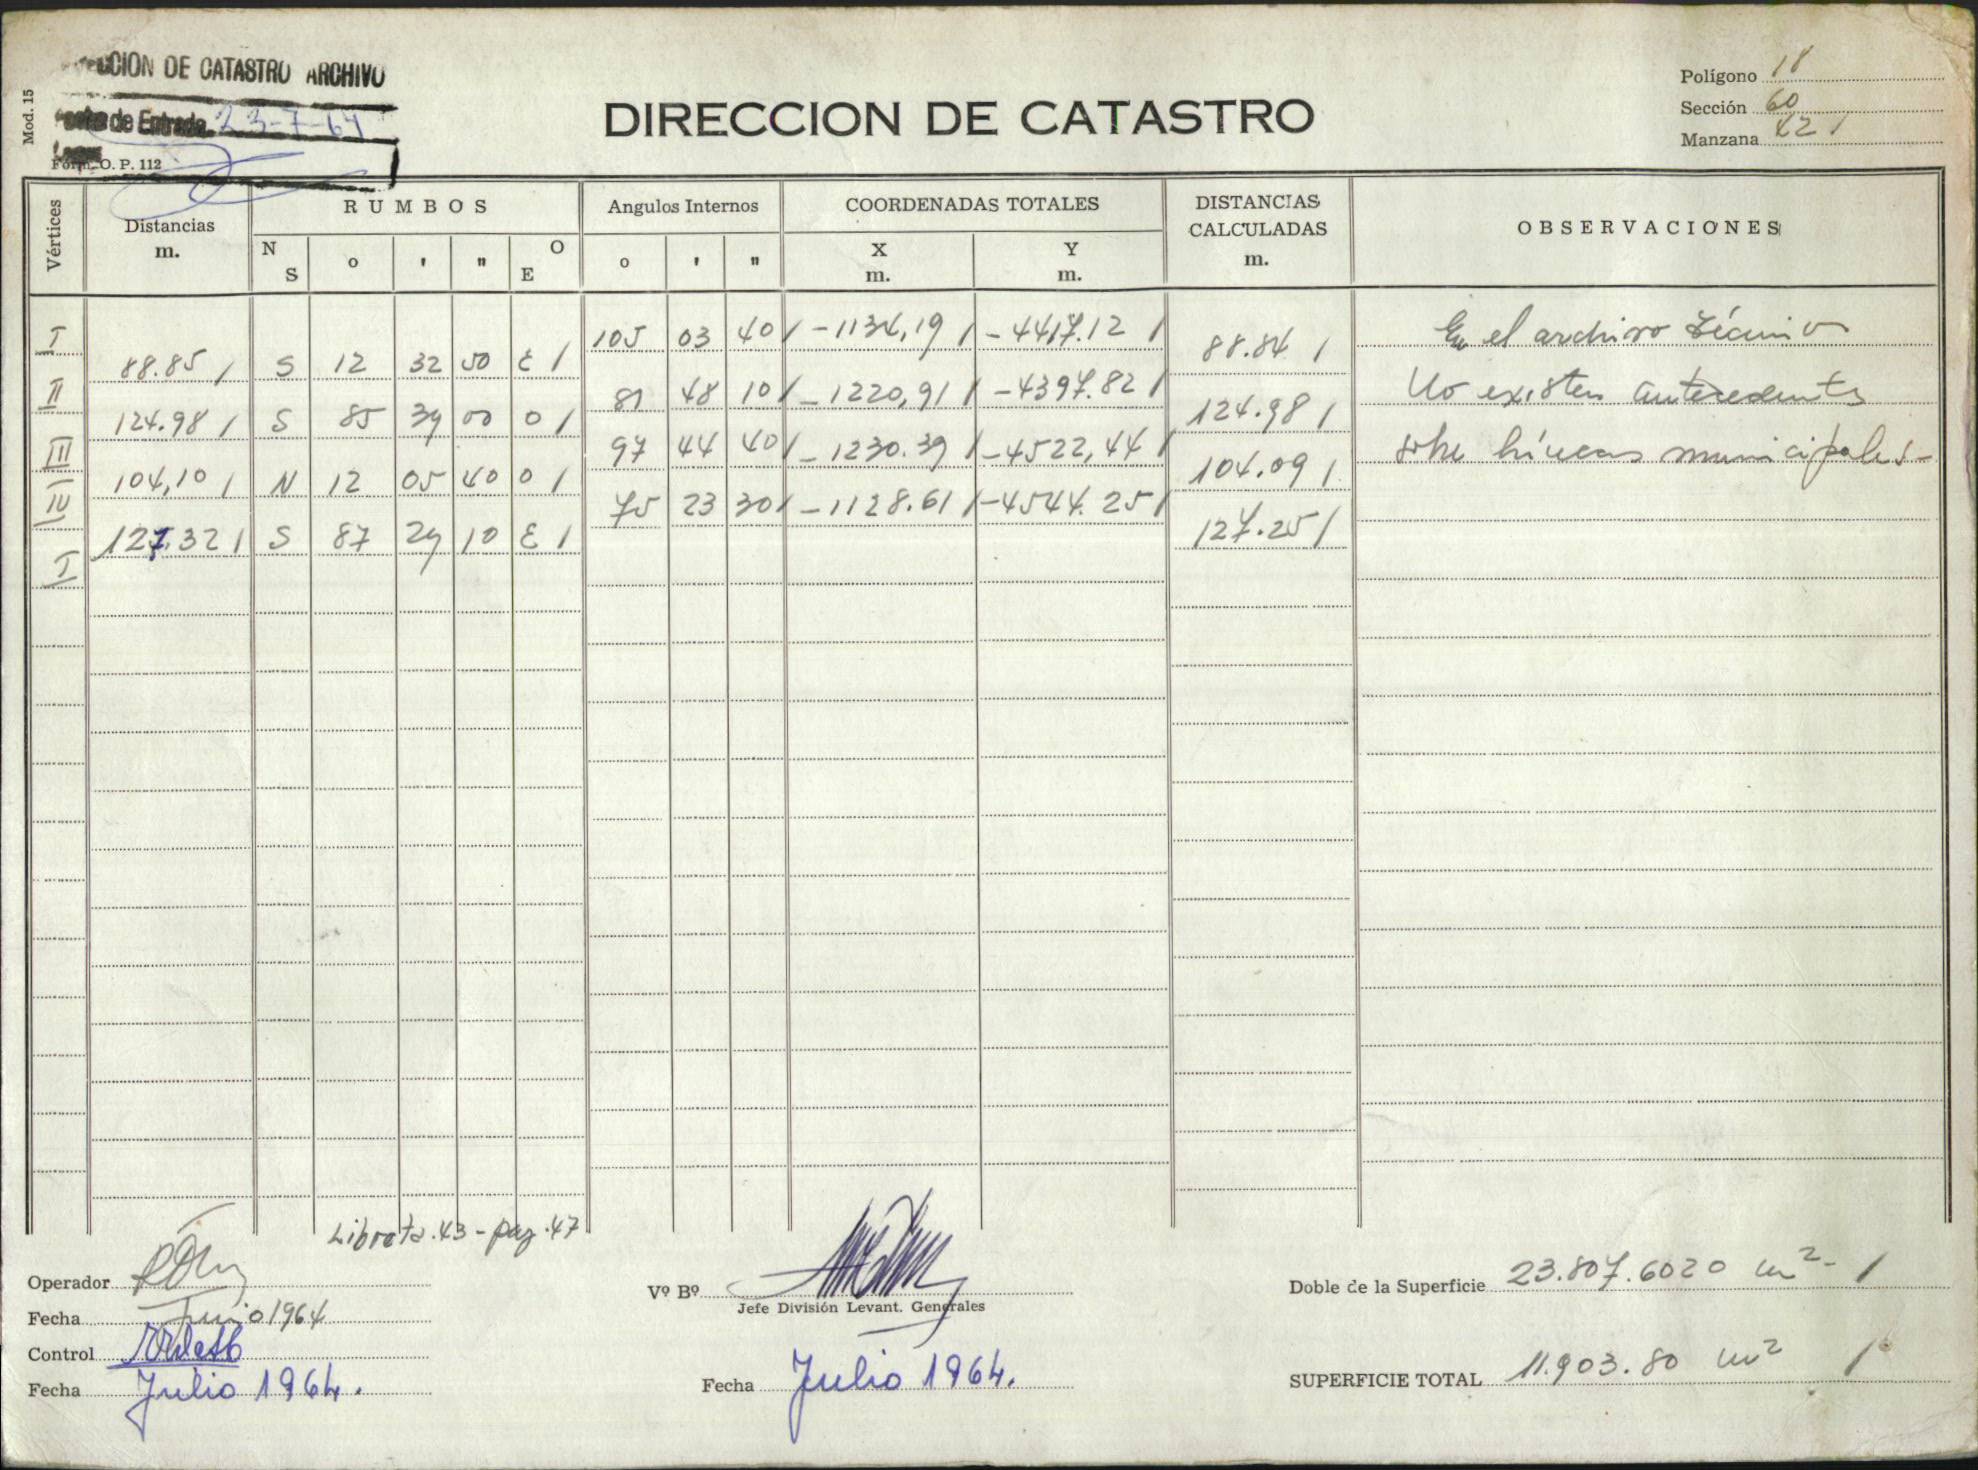 CCION DE CATASTRO ARCHIVO
de Entrada 23-7-64
Mod. 15
Form. O. P. 112
DIRECCION DE CATASTRO
Polígono 18
Sección 60
Manzana 421
Vértices
Distancias
m.
RUMBOS
N
S
o
'
"
O
E
Angulos Internos
o
'
"
COORDENADAS TOTALES
X
m.
Y
m.
DISTANCIAS
CALCULADAS
m.
OBSERVACIONES
I 105 03 40 -1134,19 -4417.12
88.85 S 12 32 50 E 88.84
II 81 48 10 -1220,91 -4397.82
124.98 S 85 39 00 O 124.98
III 97 44 40 -1230.39 -4522,44
104,10 N 12 05 40 O 104.09
IV 75 23 30 -1128.61 -4544.25
127.32 S 87 29 10 E 127.25
I
En el archivo técnico
No existen antecedentes
sobre líneas municipales-
Libreta.43-pag.47
Operador
Fecha Junio 1964
Control
Fecha Julio 1964.
Vº Bº
Jefe División Levant. Generales
Fecha Julio 1964.
Doble de la Superficie 23.807.6020 m²-
SUPERFICIE TOTAL 11.903.80 m²